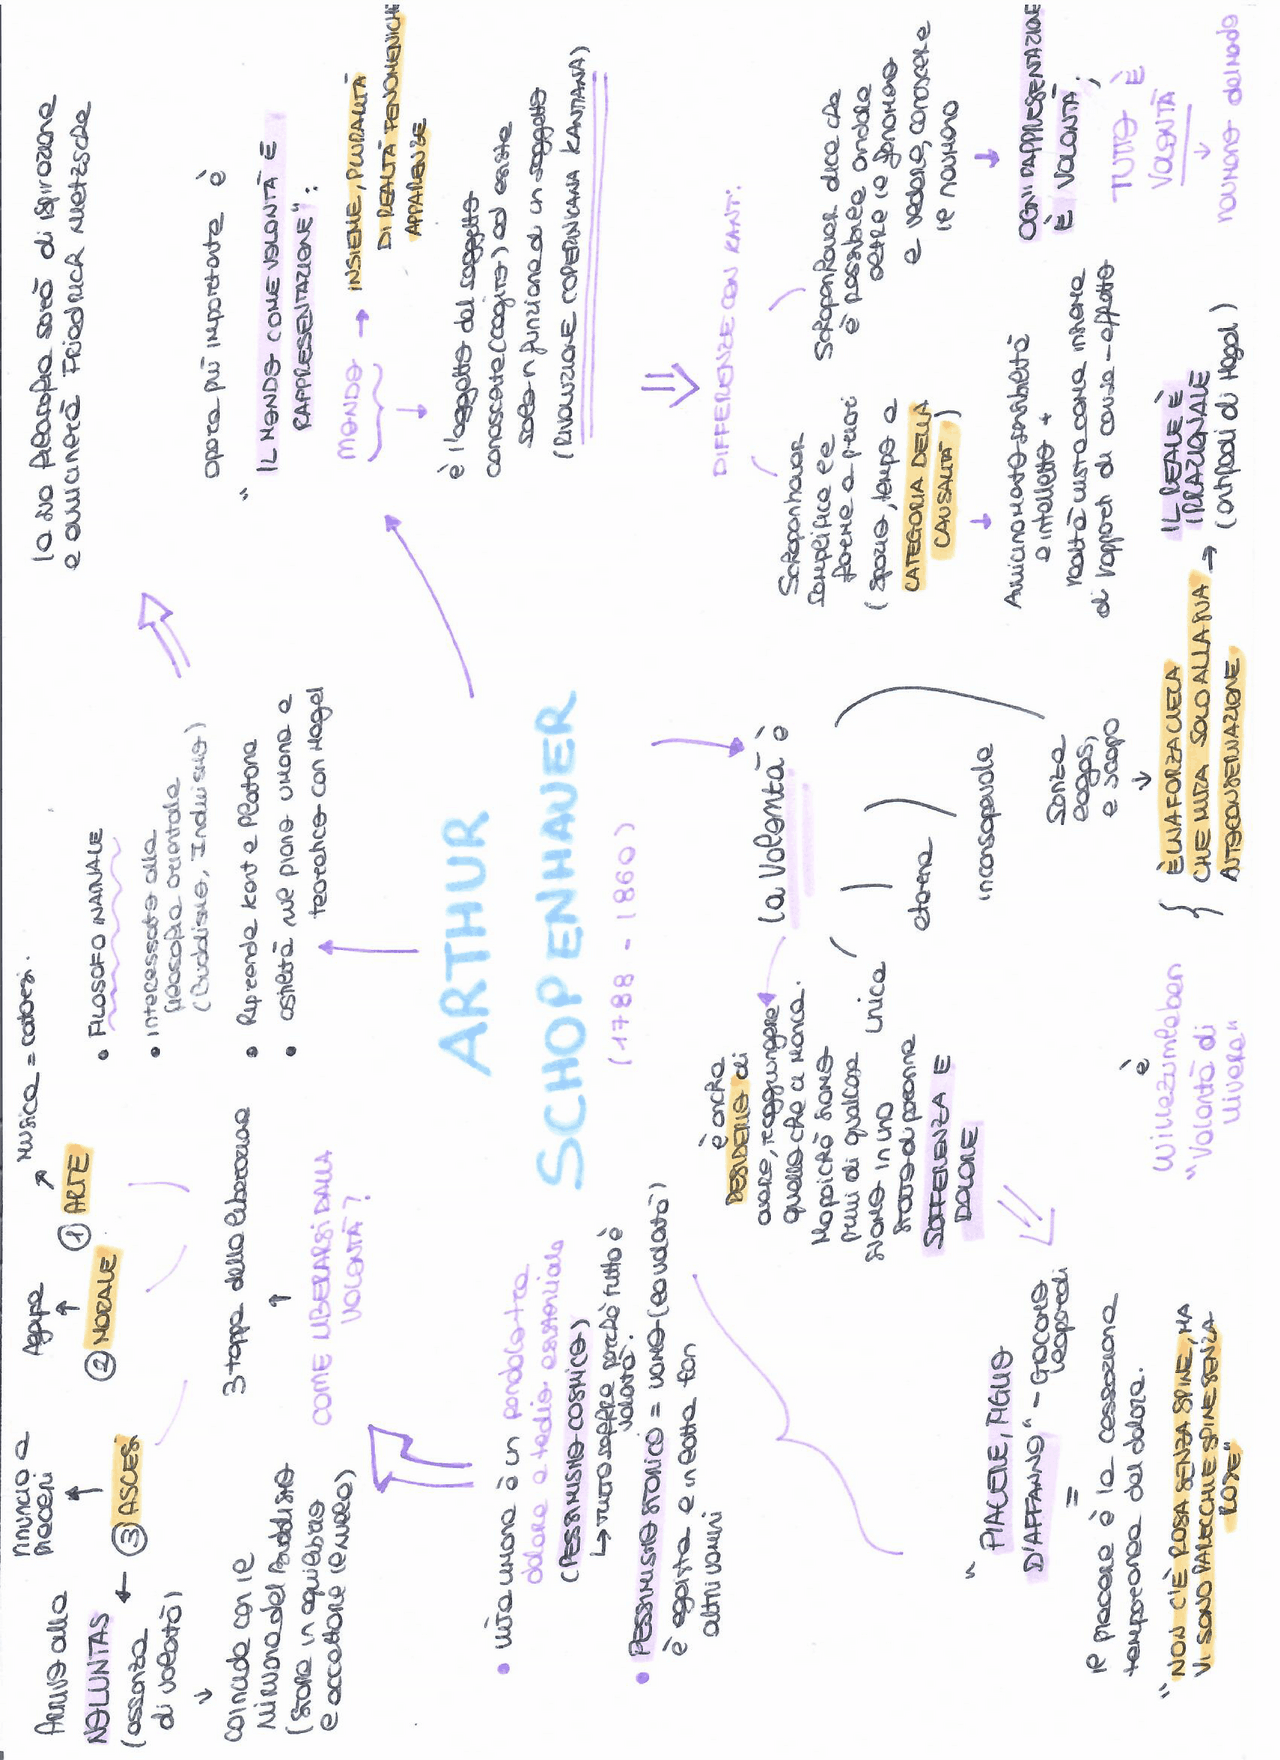 ARTHUR
SCHOPENHAUER
(1788 - 1860)
• FILOSOFO INVERNALE
• Interessato alla
filosofia orientale
(Buddismo, Induismo)
• Riprende Kant e Platone
• ostilità nel piano umano e
teoretico con Hegel
la sua filosofia sarà di ispirazione
e avvicinerà Friedrick Nietzsche
opera più importante è
"IL MONDO COME VOLONTÀ E
RAPPRESENTAZIONE":
MONDO → INSIEME, PLURALITÀ
DI REALTÀ FENOMENICHE
APPARENSE
è l'oggetto del soggetto
conoscente (cogito) ed esiste
solo in funzione di un soggetto
(RIVOLUZIONE COPERNICANA KANTIANA)
DIFFERENZE CON KANT:
Schopenhauer
semplifica le
forme a priori
(spazio, tempo e
CATEGORIA DELLA
CAUSALITÀ)
Avvicinamento sensibilità
e intelletto +
realtà vista come insieme
di rapporti di causa-effetto
Schopenhauer dice che
è possibile andare
oltre il fenomeno
e vedere, conoscere
il noumeno
OGNI RAPPRESENTAZIONE
È VOLONTÀ;
TUTTO È
VOLONTÀ
noumeno del mondo
la volontà è
unica
eterna
inconsapevole
senza
logos,
e scopo
{ È UNA FORZA CIECA
CHE MIRA SOLO ALLA SUA
AUTOCONSERVAZIONE
→ IL REALE È
IRRAZIONALE
(antipodi di Hegel)
è
Wille zum leben
"Volontà di
vivere"
è anche
DESIDERIO di
avere, raggiungere
quello che ci manca.
Ma poiché siamo
privi di qualcosa
siamo in uno
stato di perenne
SOFFERENZA E
DOLORE
"PIACERE, FIGLIO
D'AFFANNO" - Giacomo
Leopardi
=
il piacere è la cessazione
temporanea del dolore.
"NON C'È ROSA SENZA SPINE, MA
VI SONO PARECCHIE SPINE SENZA
ROSE"
• vita umana è un pendolo tra
dolore e tedio esistenziale
(PESSIMISMO COSMICO)
↳ tutto soffre poiché tutto è
volontà.
• PESSIMISMO STORICO = uomo (evoluto)
è egoista e in lotta con
altri uomini
COME LIBERARSI DALLA
VOLONTÀ?
3 tappe della liberazione
① ARTE
Musica = catarsi.
② MORALE
Agape
③ ASCESI
Rinuncia a
piaceri
Arrivo alla
NOLUNTAS
(assenza
di volontà)
coincide con il
Nirvana del Buddismo
(stare in equilibrio
e accettare il nulla)